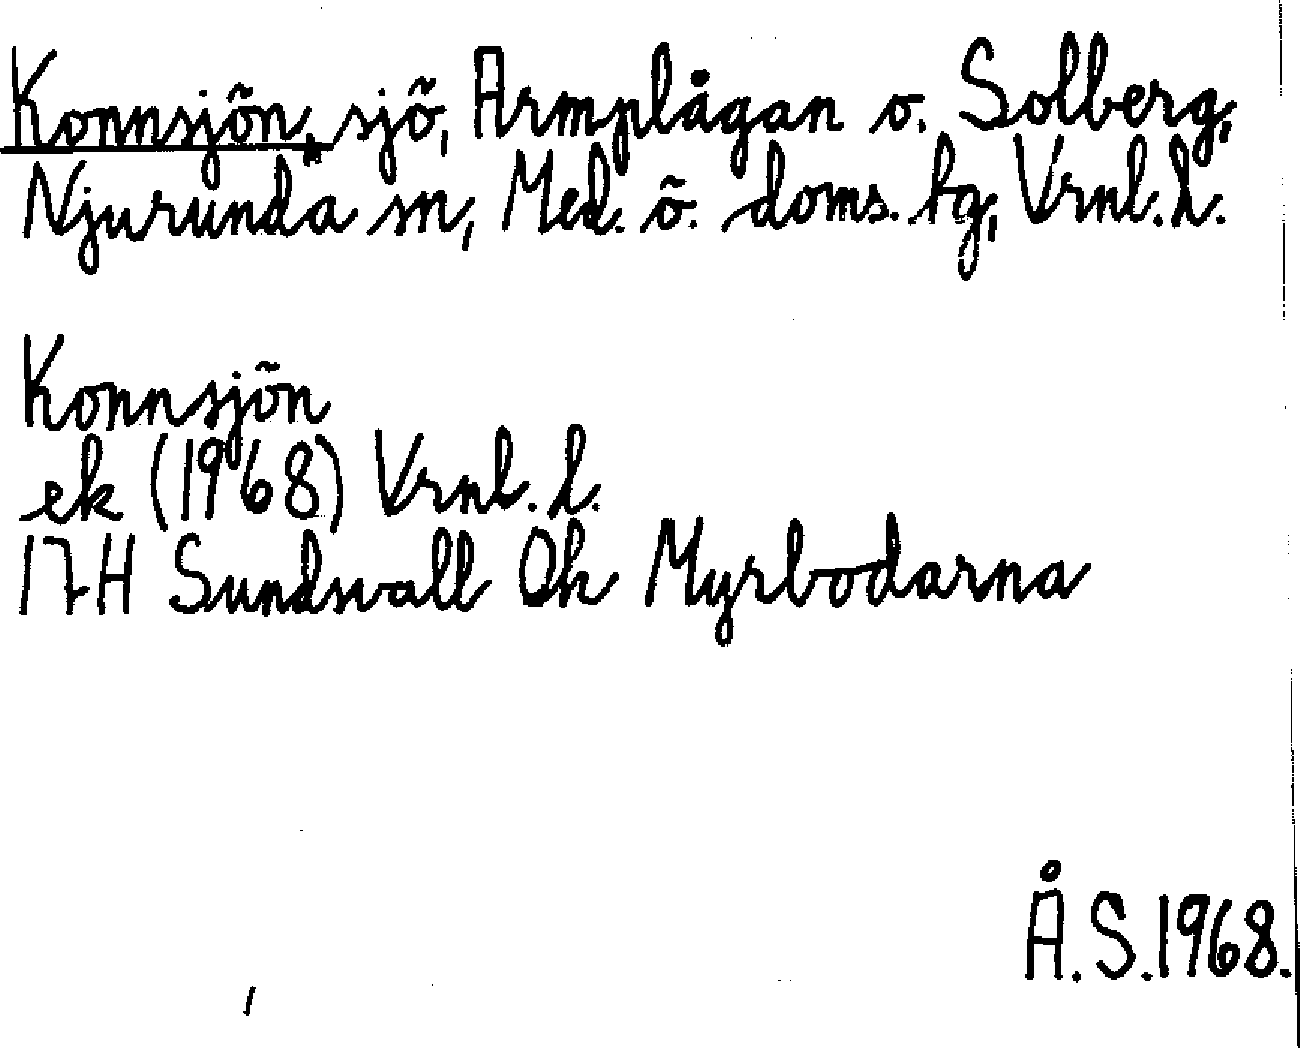 Konnsjön, sjö, Armplågan o. Solberg,
Njurunda sn, Med. ö. doms. tg, Vrnl. l.
Konnsjön
ek (1968) Vrnl. l.
17H Sundsvall Oh Myrbodarna
Å.S. 1968.